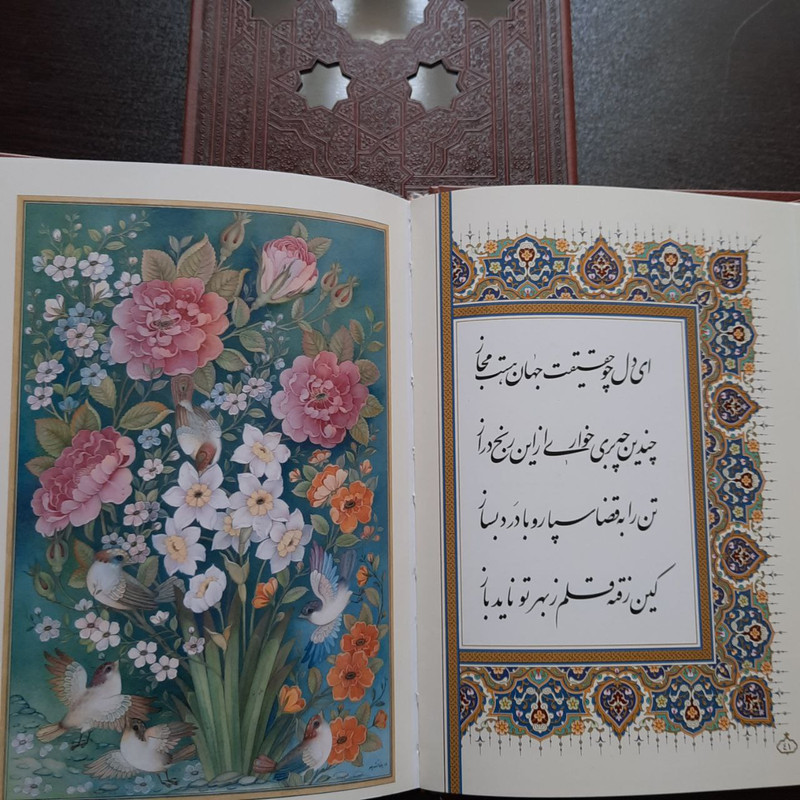 ای دل چو حقیقت جهان هست مجاز
چندین چه بری خواری ازین رنج دراز
تن را به قضا سپار و با درد بساز
کین رفته قلم ز بهر تو ناید باز
٤١